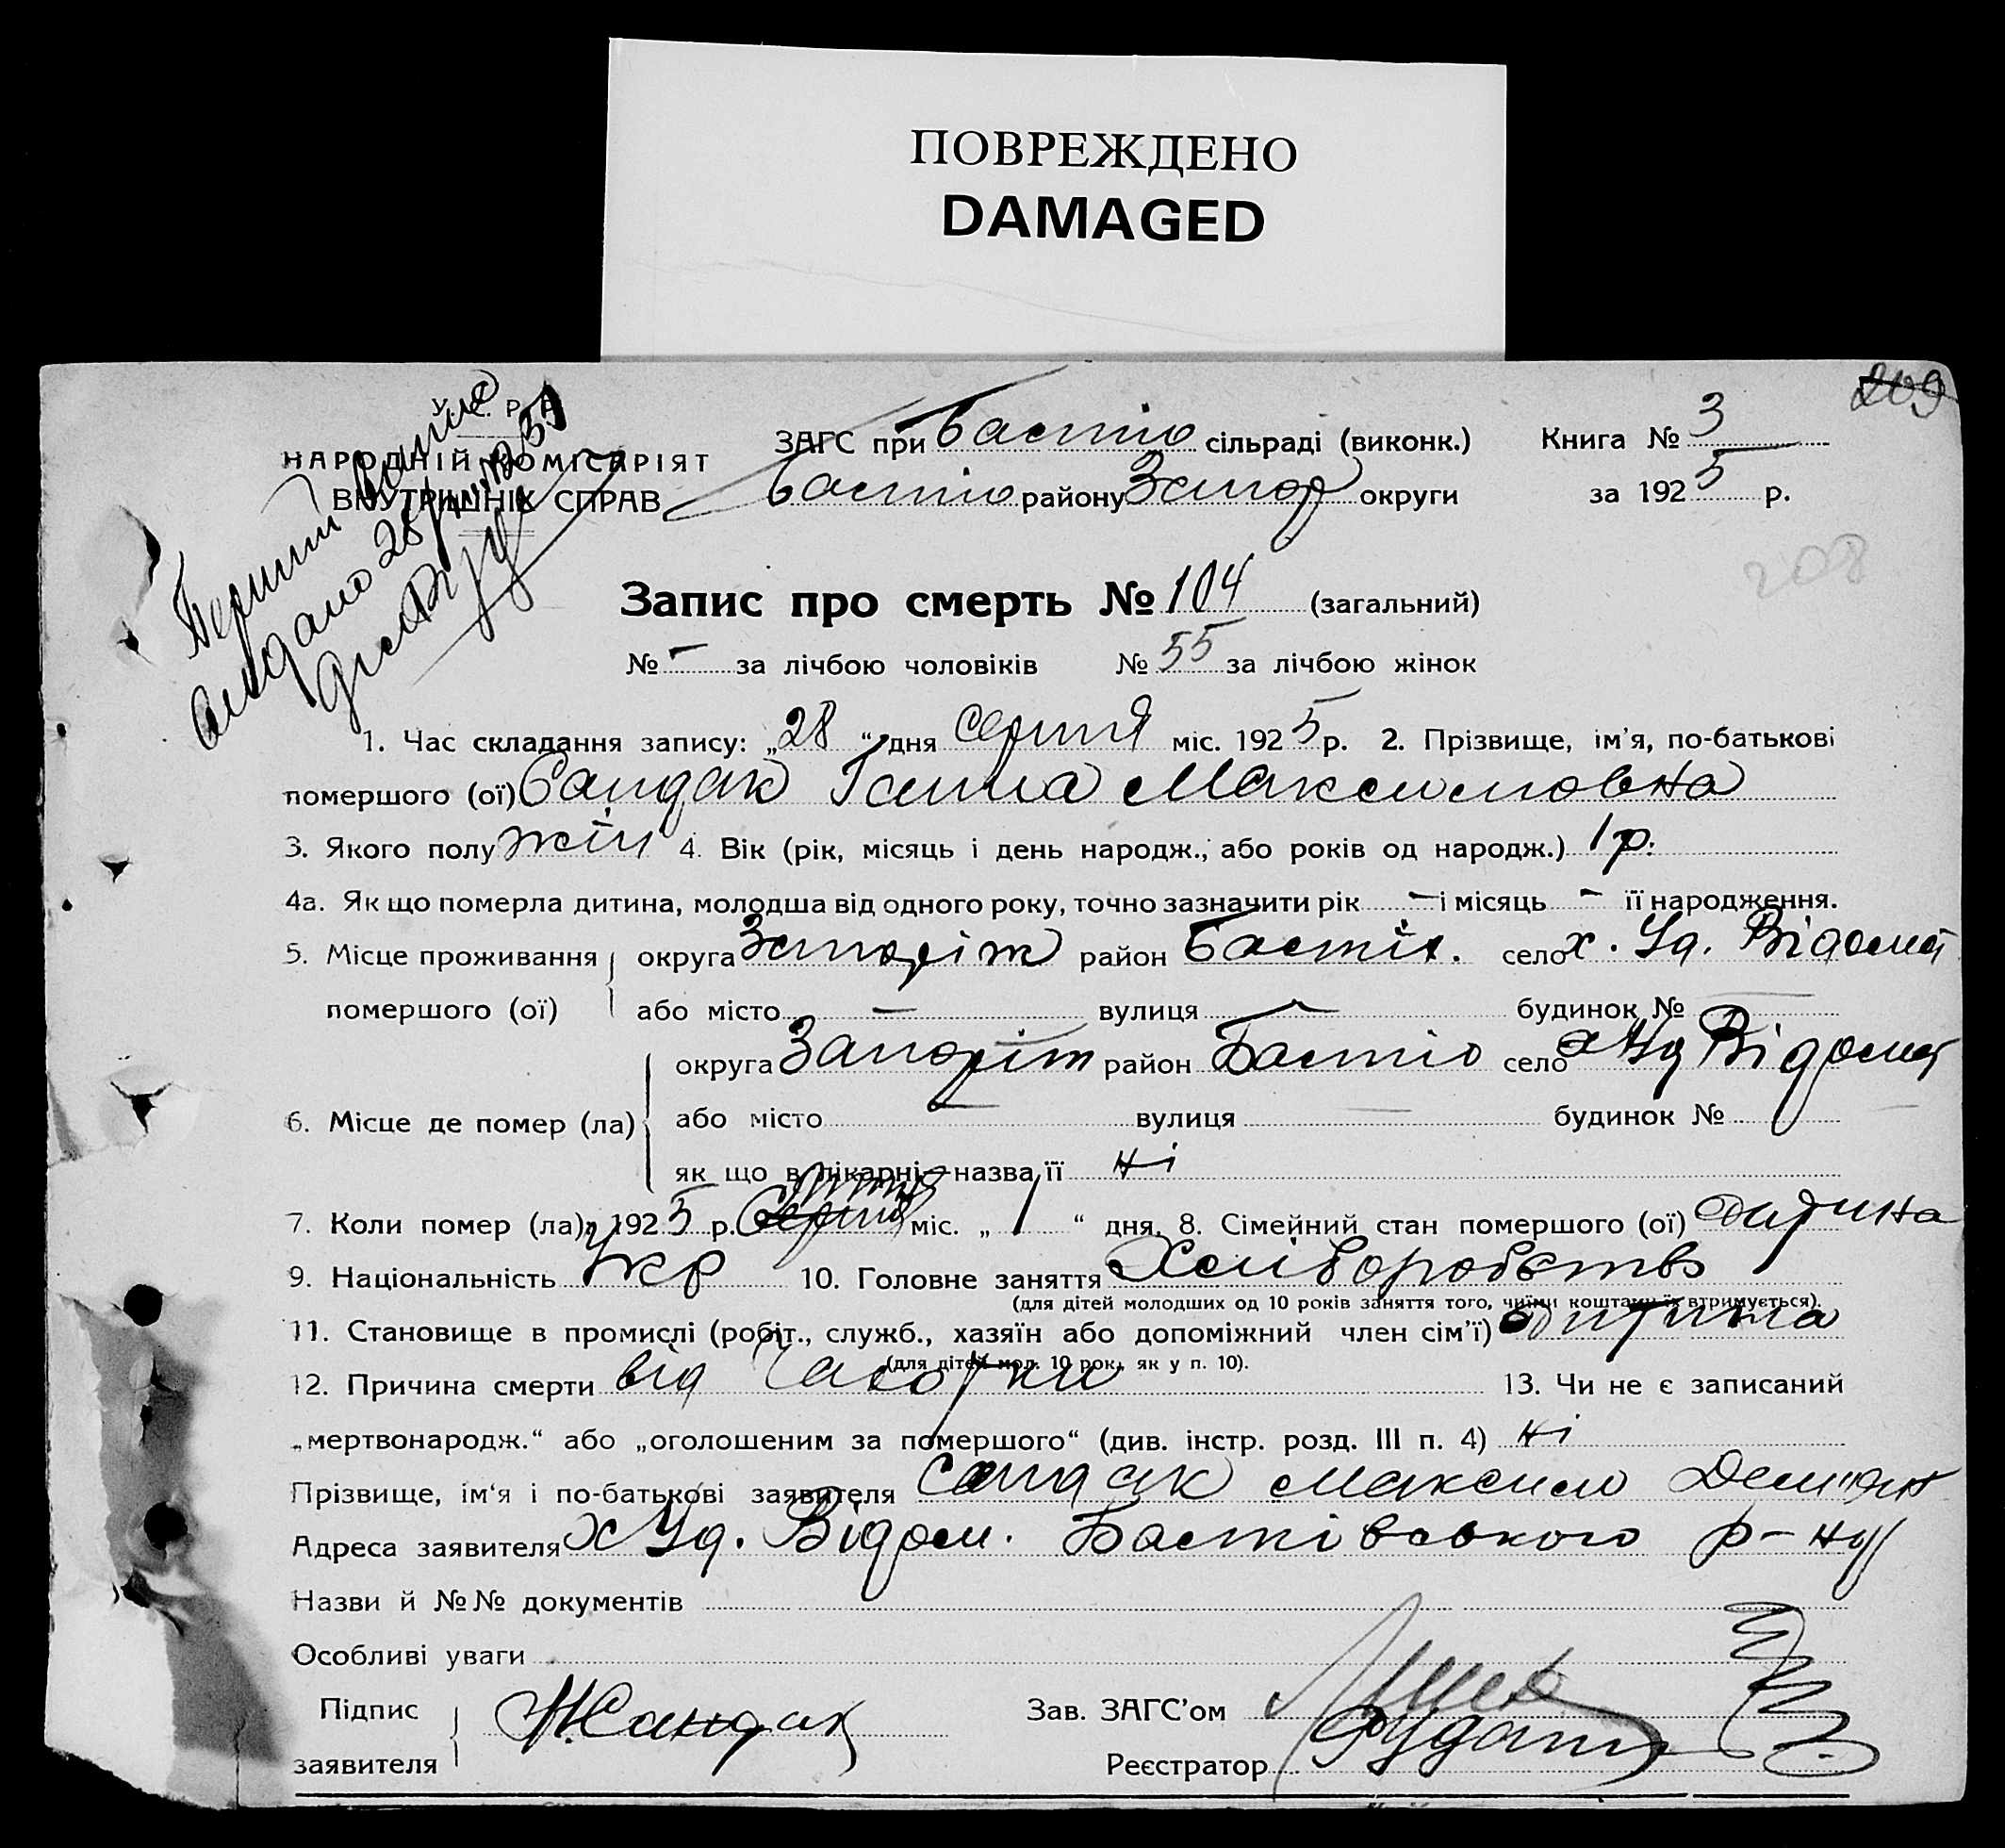 ПОВРЕЖДЕНО
DAMAGED
209
У. С. Р. Р.
НАРОДНІЙ КОМІСАРІЯТ
ВНУТРІШНІХ СПРАВ
ЗАГС при Бастіо сільраді (виконк.) Книга № 3
Бастіо району Запор округи за 1925 р.
208
Запис про смерть № 104 (загальний)
№ - за лічбою чоловіків № 55 за лічбою жінок
1. Час складання запису: „28“ дня серпня міс. 1925 р. 2. Прізвище, ім'я, по-батькові
помершого (ої) Сандак Ганна Максимовна
3. Якого полу жін 4. Вік (рік, місяць і день народж., або років од народж.) 1 р.
4а. Як що померла дитина, молодша від одного року, точно зазначити рік - і місяць - її народження.
5. Місце проживання округа Запоріж район Бастіо. село х. Уд. Відом
помершого (ої) або місто - вулиця - будинок №
округа Запоріж район Бастіо село х Уд Відом
6. Місце де помер (ла) або місто вулиця будинок №
як що в лікарні—назва її ні
7. Коли помер (ла) 1925 р. Серпня міс. „1“ дня. 8. Сімейний стан помершого (ої) дитина
9. Національність Укр 10. Головне заняття Хліборобство
(для дітей молодших од 10 років заняття того, чиїми коштами їх втримується).
11. Становище в промислі (робіт., служб., хазяїн або допоміжний член сім'ї) дитина
(для дітей мол. 10 рок., як у п. 10).
12. Причина смерти від 13. Чи не є записаний
„мертвонародж.“ або „оголошеним за помершого“ (див. інстр. розд. III п. 4) ні
Прізвище, ім'я і по-батькові заявителя Сандак Максим Демян
Адреса заявителя х Уд. Відом. Бастівського р-ну
Назви й №№ документів
Особливі уваги
Підпис М. Сандак Зав. ЗАГС'ом
заявителя Реєстратор